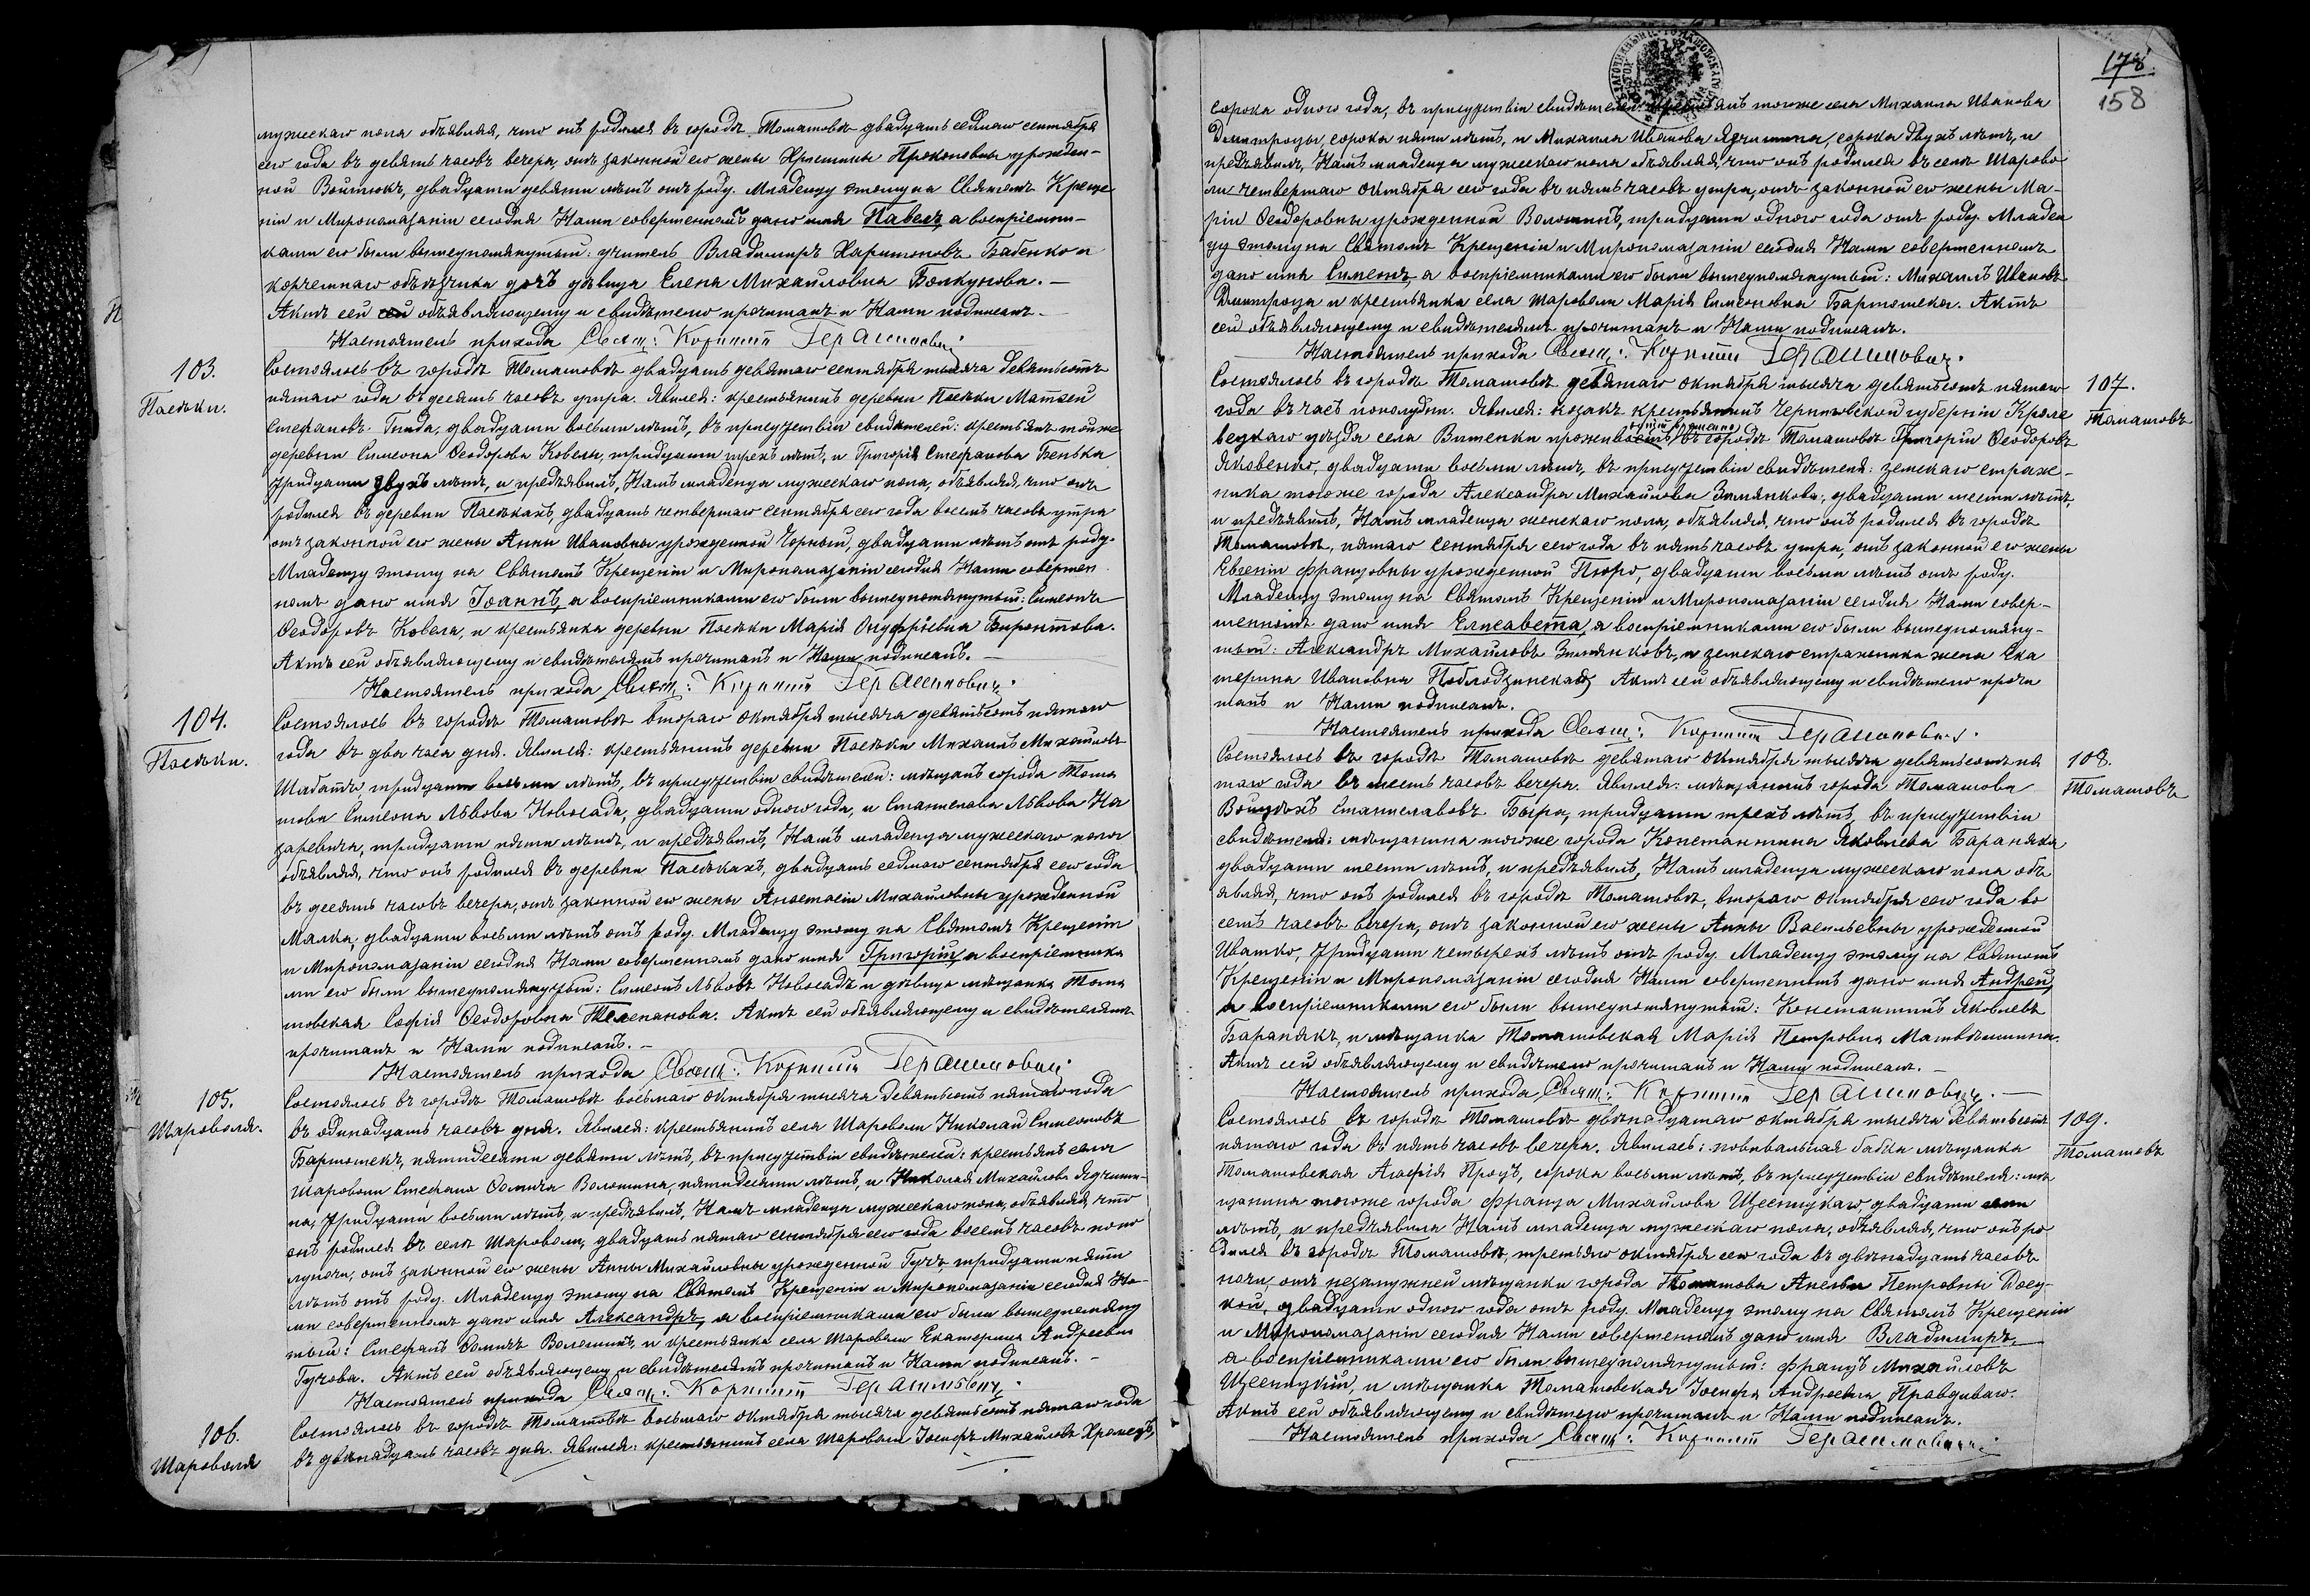 мужескаго пола объявляя, что онъ родился въ городѣ Томашовѣ двадцать седмаго сентября
сего года въ девять часовъ вечера, отъ законной его жены Христины Прокоповны урожден-
ной Войтюкъ, двадцати девяти лѣтъ отъ роду. Младенцу этому на Святомъ Креще
ніи и Миропомазаніи сегодня Нами совершенномъ дано имя Павелъ, а воспріемни-
ками его были вышеупомянутый: учитель Владимиръ Харитоновъ Бабенко и
корчемнаго объѣздчика дочь дѣвица Елена Михайловна Болкунова. —
Актъ сей объявляющему и свидѣтелю прочитанъ и Нами подписанъ. —
Настоятель прихода Свящ: Корнилій Герасимовичъ.
103.
Пасѣки.
Состоялось въ городѣ Томашовѣ двадцать девятаго сентября тысяча девятьсотъ
пятаго года въ десять часовъ утра. Явился: крестьянинъ деревни Пасѣки Матѳей
Стефановъ Гнида, двадцати восьми лѣтъ, въ присутствіи свидѣтелей: крестьянъ тойже
деревни Симеона Ѳеодорова Ковели, тридцати трехъ лѣтъ, и Григорія Стефанова Бенька
тридцати двухъ лѣтъ, и предъявилъ, Намъ младенца мужескаго пола, объявляя, что онъ
родился въ деревни Пасѣкахъ, двадцать четвертаго сентября сего года восемь часовъ утра
отъ законной его жены Анны Ивановны урожденной Чорный, двадцати лѣтъ отъ роду.
Младенцу этому на Святомъ Крещеніи и Миропомазаніи сегодня Нами совершен
номъ дано имя Іоаннъ, а воспріемниками его были вышеупомянутый: Симеонъ
Ѳеодоровъ Ковела, и крестьянка деревни Пасѣки Марія Онуфріевна Биронтова.
Актъ сей объявляющему и свидѣтелямъ прочитанъ и Нами подписанъ. —
Настоятель прихода Свящ: Корнилій Герасимовичъ.
104.
Пасѣки.
Состоялось въ городѣ Томашовѣ втораго октября тысяча девятьсотъ пятаго
года въ два часа дня. Явился: крестьянинъ деревни Пасѣки Михаилъ Михайловъ
Шабатъ, тридцати восьми лѣтъ, въ присутствіи свидѣтелей: мѣщанъ города Тома
шова Симеона Львова Новосада, двадцати одного года, и Станислава Львова На
заревича, тридцати пяти лѣтъ, и предъявилъ, Намъ младенца мужескаго пола
объявляя, что онъ родился въ деревни Пасѣкахъ, двадцать седмаго сентября сего года
въ десять часовъ вечера, отъ законной его жены Анастасіи Михайловны урожденной
Малка, двадцати восьми лѣтъ отъ роду. Младенцу этому на Святомъ Крещеніи
и Миропомазаніи сегодня Нами совершенномъ дано имя Григорій, а воспріемника
ми его были вышеупомянутый: Симеонъ Львовъ Новосадъ и дѣвица мѣщанка Тома
шовская Софія Ѳеодоровна Телепанова. Актъ сей объявляющему и свидѣтелямъ
прочитанъ и Нами подписанъ. —
Настоятель прихода Свящ: Корнилій Герасимовичъ.
105.
Шароволя.
Состоялось въ городѣ Томашовѣ восьмаго октября тысяча девятьсотъ пятаго года
въ одинадцать часовъ дня. Явился: крестьянинъ села Шароволи Николай Симеоновъ
Бартошекъ, пятидесяти девяти лѣтъ, въ присутствіи свидѣтелей: крестьянъ села
Шароволи Стефана Ѳомича Волошина, пятидесяти лѣтъ, и Николая Михайлова Ядчиши-
на, тридцати восьми лѣтъ, и предъявилъ, Намъ младенца мужескаго пола, объявляя, что
онъ родился въ селѣ Шароволи, двадцать пятаго сентября сего года восемь часовъ попо
луночи, отъ законной его жены Анны Михайловны урожденной Гучъ, тридцати пяти
лѣтъ отъ роду. Младенцу этому на Святомъ Крещеніи и Миропомазаніи сегодня На-
ми совершенномъ дано имя Александръ, а воспріемниками его были вышеупомяну
тый: Стефанъ Ѳомичъ Волошинъ, и крестьянка села Шароволи Екатерина Андреевна
Гучова. Актъ сей объявляющему и свидѣтелямъ прочитанъ и Нами подписанъ. —
Настоятель прихода Свящ: Корнилій Герасимовичъ.
106.
Шароволя
Состоялось въ городѣ Томашовѣ восьмаго октября тысяча девятьсотъ пятаго года
въ двѣнадцать часовъ дня. Явился: крестьянинъ села Шароволи Іосифъ Михайловъ Хромецъ,
178.
158
сорока одного года, въ присутствіи свидѣтелей: крестьянъ тогоже села Михаила Иванова
Дмитроцы, сорока пяти лѣтъ, и Михаила Иванова Ядчишина, сорока двухъ лѣтъ, и
предъявилъ, Намъ младенца мужескаго пола объявляя, что онъ родился въ селѣ Шарово
ли четвертаго октября сего года въ пять часовъ утра, отъ законной его жены Ма-
ріи Ѳеодоровны урожденной Волошинъ, тридцати одного года отъ роду. Младен
цу этому на Святомъ Крещеніи и Миропомазаніи сегодня Нами совершенномъ
дано имя Симеонъ, а воспріемниками его были вышеупомянутый: Михаилъ Ивановъ
Дмитроца и крестьянка села Шароволи Марія Симеоновна Бартошека. Актъ
сей объявляющему и свидѣтелямъ прочитанъ и Нами подписанъ.
Настоятель прихода Свящ: Корнилій Герасимовичъ.
107.
Томашовъ
Состоялось въ городѣ Томашовѣ девятаго октября тысяча девятьсотъ пятаго
года въ часъ пополудни. Явился: козакъ крестьянинъ Черниговской губерніи Кроле
вецкаго уѣзда села Витенки въ городѣ Томашовѣ Григорій Ѳеодоровъ
Яковенко, двадцати восьми лѣтъ, въ присутствіи свидѣтеля: земскаго страж-
ника тогоже города Александра Михайлова Зимянкова, двадцати шести лѣтъ,
и предъявилъ, Намъ младенца женскаго пола, объявляя, что онъ родился въ городѣ
Томашовѣ, пятаго сентября сего года въ пять часовъ утра, отъ законной его жены
Евгеніи Францовны урожденной Пюро, двадцати восьми лѣтъ отъ роду.
Младенцу этому на Святомъ Крещеніи и Миропомазаніи сегодня Нами совер-
шенномъ дано имя Елисавета, а воспріемниками его были вышеупомяну-
тый: Александръ Михайловъ Зимянковъ, и земскаго стражника жена Ека
терина Ивановна Поблодзинская. Актъ сей объявляющему и свидѣтелю прочи
танъ и Нами подписанъ.
Настоятель прихода Свящ: Корнилій Герасимовичъ.
108.
Томашовъ
Состоялось въ городѣ Томашовѣ девятаго октября тысяча девятьсотъ пя
таго года въ шесть часовъ вечера. Явился: мѣщанинъ города Томашова
Войцѣхъ Станиславовъ Быра, тридцати трехъ лѣтъ, въ присутствіи
свидѣтеля: мѣщанина тогоже города Константина Яковлева Бараняка,
двадцати шести лѣтъ, и предъявилъ, Намъ младенца мужескаго пола объ
являя, что онъ родился въ городѣ Томашовѣ, втораго октября сего года во
семь часовъ вечера, отъ законной его жены Анны Васильевны урожденной
Ивашко, тридцати четырехъ лѣтъ отъ роду. Младенцу этому на Святомъ
Крещеніи и Миропомазаніи сегодня Нами совершенномъ дано имя Андрей,
а воспріемниками его были вышеупомянутый: Константинъ Яковлевъ
Баранякъ, и мѣщанка Томашовская Марія Петровна Матвѣишина.
Актъ сей объявляющему и свидѣтелю прочитанъ и Нами подписанъ. —
Настоятель прихода, Свящ: Корнилій Герасимовичъ. —
109.
Томашовъ
Состоялось въ городѣ Томашовѣ двѣнадцатаго октября тысяча девятьсотъ
пятаго года въ пять часовъ вечера. Явилась: повивальная бабка мѣщанка
Томашовская Агафія Процъ, сорока восьми лѣтъ, въ присутствіи свидѣтеля: мѣ
щанина тогоже города Франца Михайлова Щесніцкаго, двадцати семи
лѣтъ, и предъявила Намъ младенца мужескаго пола, объявляя, что онъ ро
дился въ городѣ Томашовѣ, третьяго октября сего года въ двѣнадцать часовъ
ночи, отъ незамужней мѣщанки города Томашова Анельи Петровны Доец-
кой, двадцати одного года отъ роду. Младенцу этому на Святомъ Крещеніи
и Миропомазаніи сегодня Нами совершенномъ дано имя Владимиръ,
а воспріемниками его были вышеупомянутый: Францъ Михайловъ
Щесніцкій, и мѣщанка Томашовская Іосифа Андреевна Правдиваго.
Актъ сей объявляющему и свидѣтелю прочитанъ и Нами подписанъ.
Настоятель прихода Свящ: Корнилій Герасимовичъ.